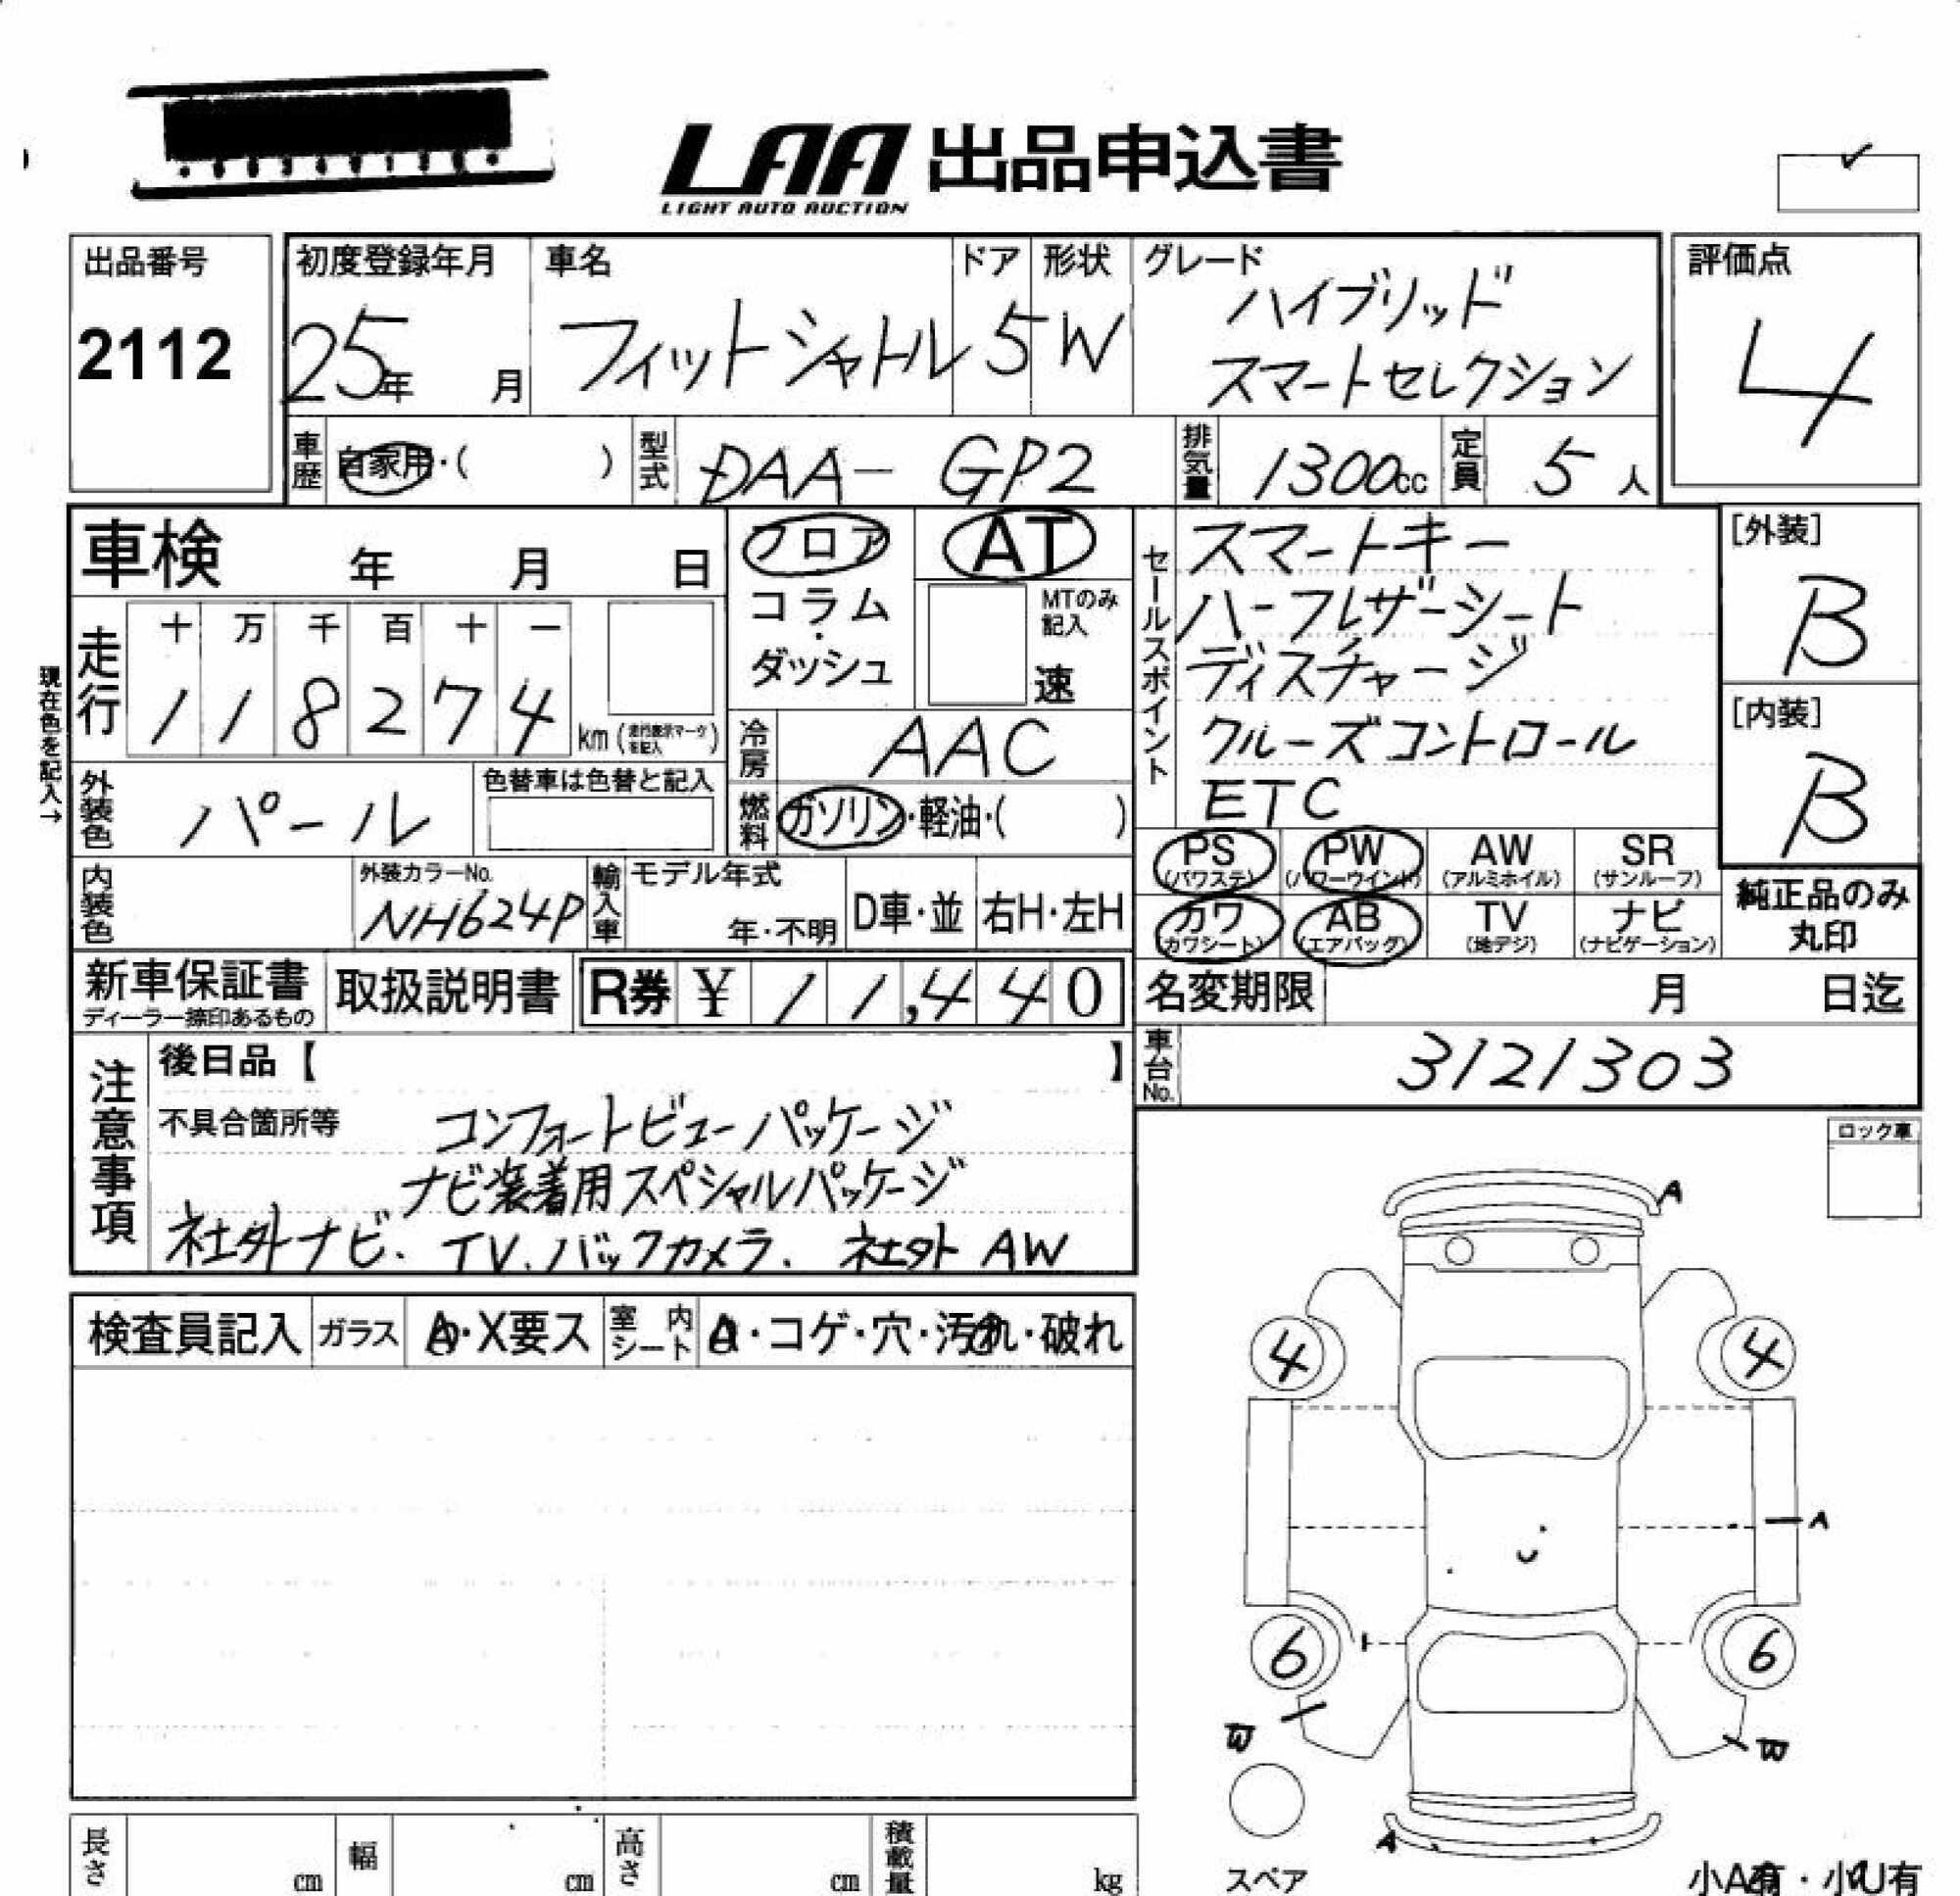 LAA 出品申込書
LIGHT AUTO AUCTION
出品番号
2112
初度登録年月
25年 月
車名
フィットシャトル
ドア
5
形状
W
グレード
ハイブリッド
スマートセレクション
評価点
4
車歴
自家用・( )
型式
DAA- GP2
排気量
1300cc
定員
5人
車検 年 月 日
走行
十 万 千 百 十 一
1 1 8 2 7 4
km
現在色を記入→
フロア
コラム
・
ダッシュ
AT
MTのみ
記入
速
冷房
AAC
燃料
ガソリン・軽油・( )
外装色
パール
色替車は色替と記入
内装色
外装カラーNo.
NH624P
輸入車
モデル年式
年・不明
D車・並
右H・左H
セールスポイント
スマートキー
ハーフレザーシート
ディスチャージ
クルーズコントロール
ETC
[外装]
B
[内装]
B
PS
(パワステ)
PW
(パワーウインド)
AW
(アルミホイル)
SR
(サンルーフ)
カワ
(カワシート)
AB
(エアバッグ)
TV
(地デジ)
ナビ
(ナビゲーション)
純正品のみ
丸印
新車保証書
ディーラー捺印あるもの
取扱説明書
R券 ¥ 11,440
名変期限 月 日迄
車台No.
3121303
注意事項
後日品【 】
不具合箇所等
コンフォートビューパッケージ
ナビ装着用スペシャルパッケージ
社外ナビ. TV. バックカメラ. 社外 AW
ロック車
検査員記入
ガラス
A・X要ス
室内
シート
・コゲ・穴・汚れ・破れ
A
4
4
A
6
6
W
W
A
スペア
小A有・小U有
長さ cm
幅 cm
高さ cm
積載量 kg